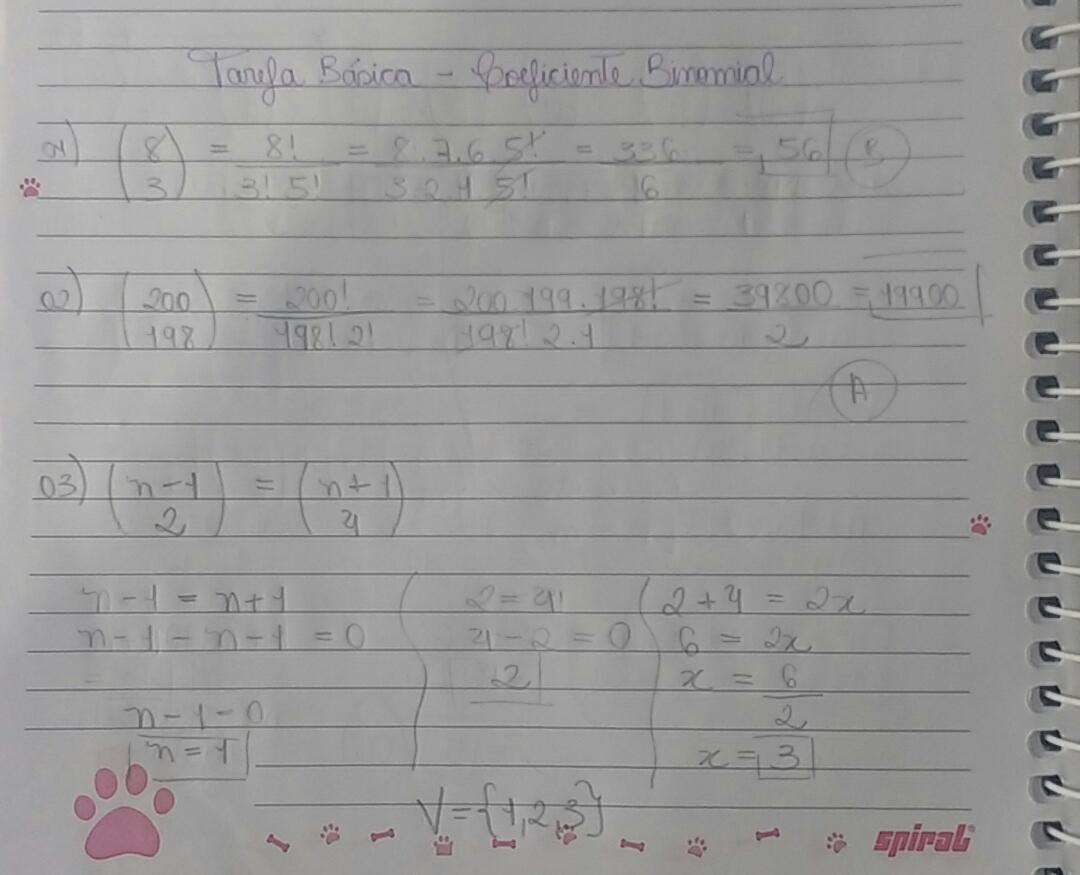 Tarefa Básica - Coeficiente Binomial
01) (8 3) = 8! / 3! 5! = 8.7.6.5! / 3.2.1 5! = 336 / 6 = 56 B
02) (200 198) = 200! / 198! 2! = 200.199.198! / 198! 2.1 = 39800 / 2 = 19900
A
03) (n-1 2) = (n+1 4)
n-1 = n+1 2=4 2+4 = 2x
n-1-n-1 = 0 4-2=0 6 = 2x
= 2 x = 6 / 2
n-1-0
n=1 x = 3
V={1,2,3}
spiral